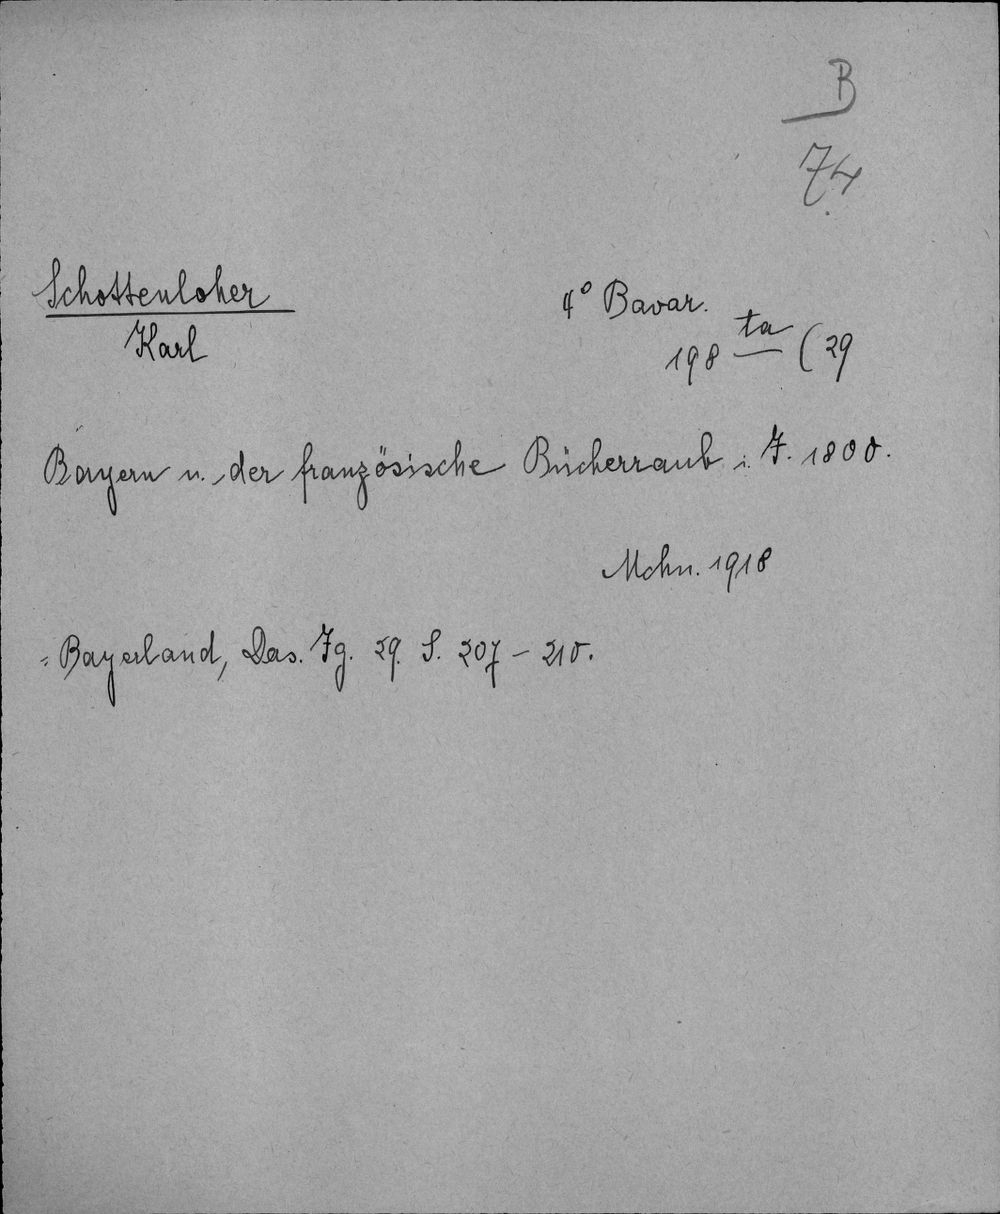 B
74
Schottenloher
Karl
4° Bavar.
198 ta (29
Bayern u. der französische Bücherraub i. J. 1800.
Mchn. 1918
= Bayerland, Das. Jg. 29. S. 207 - 210.